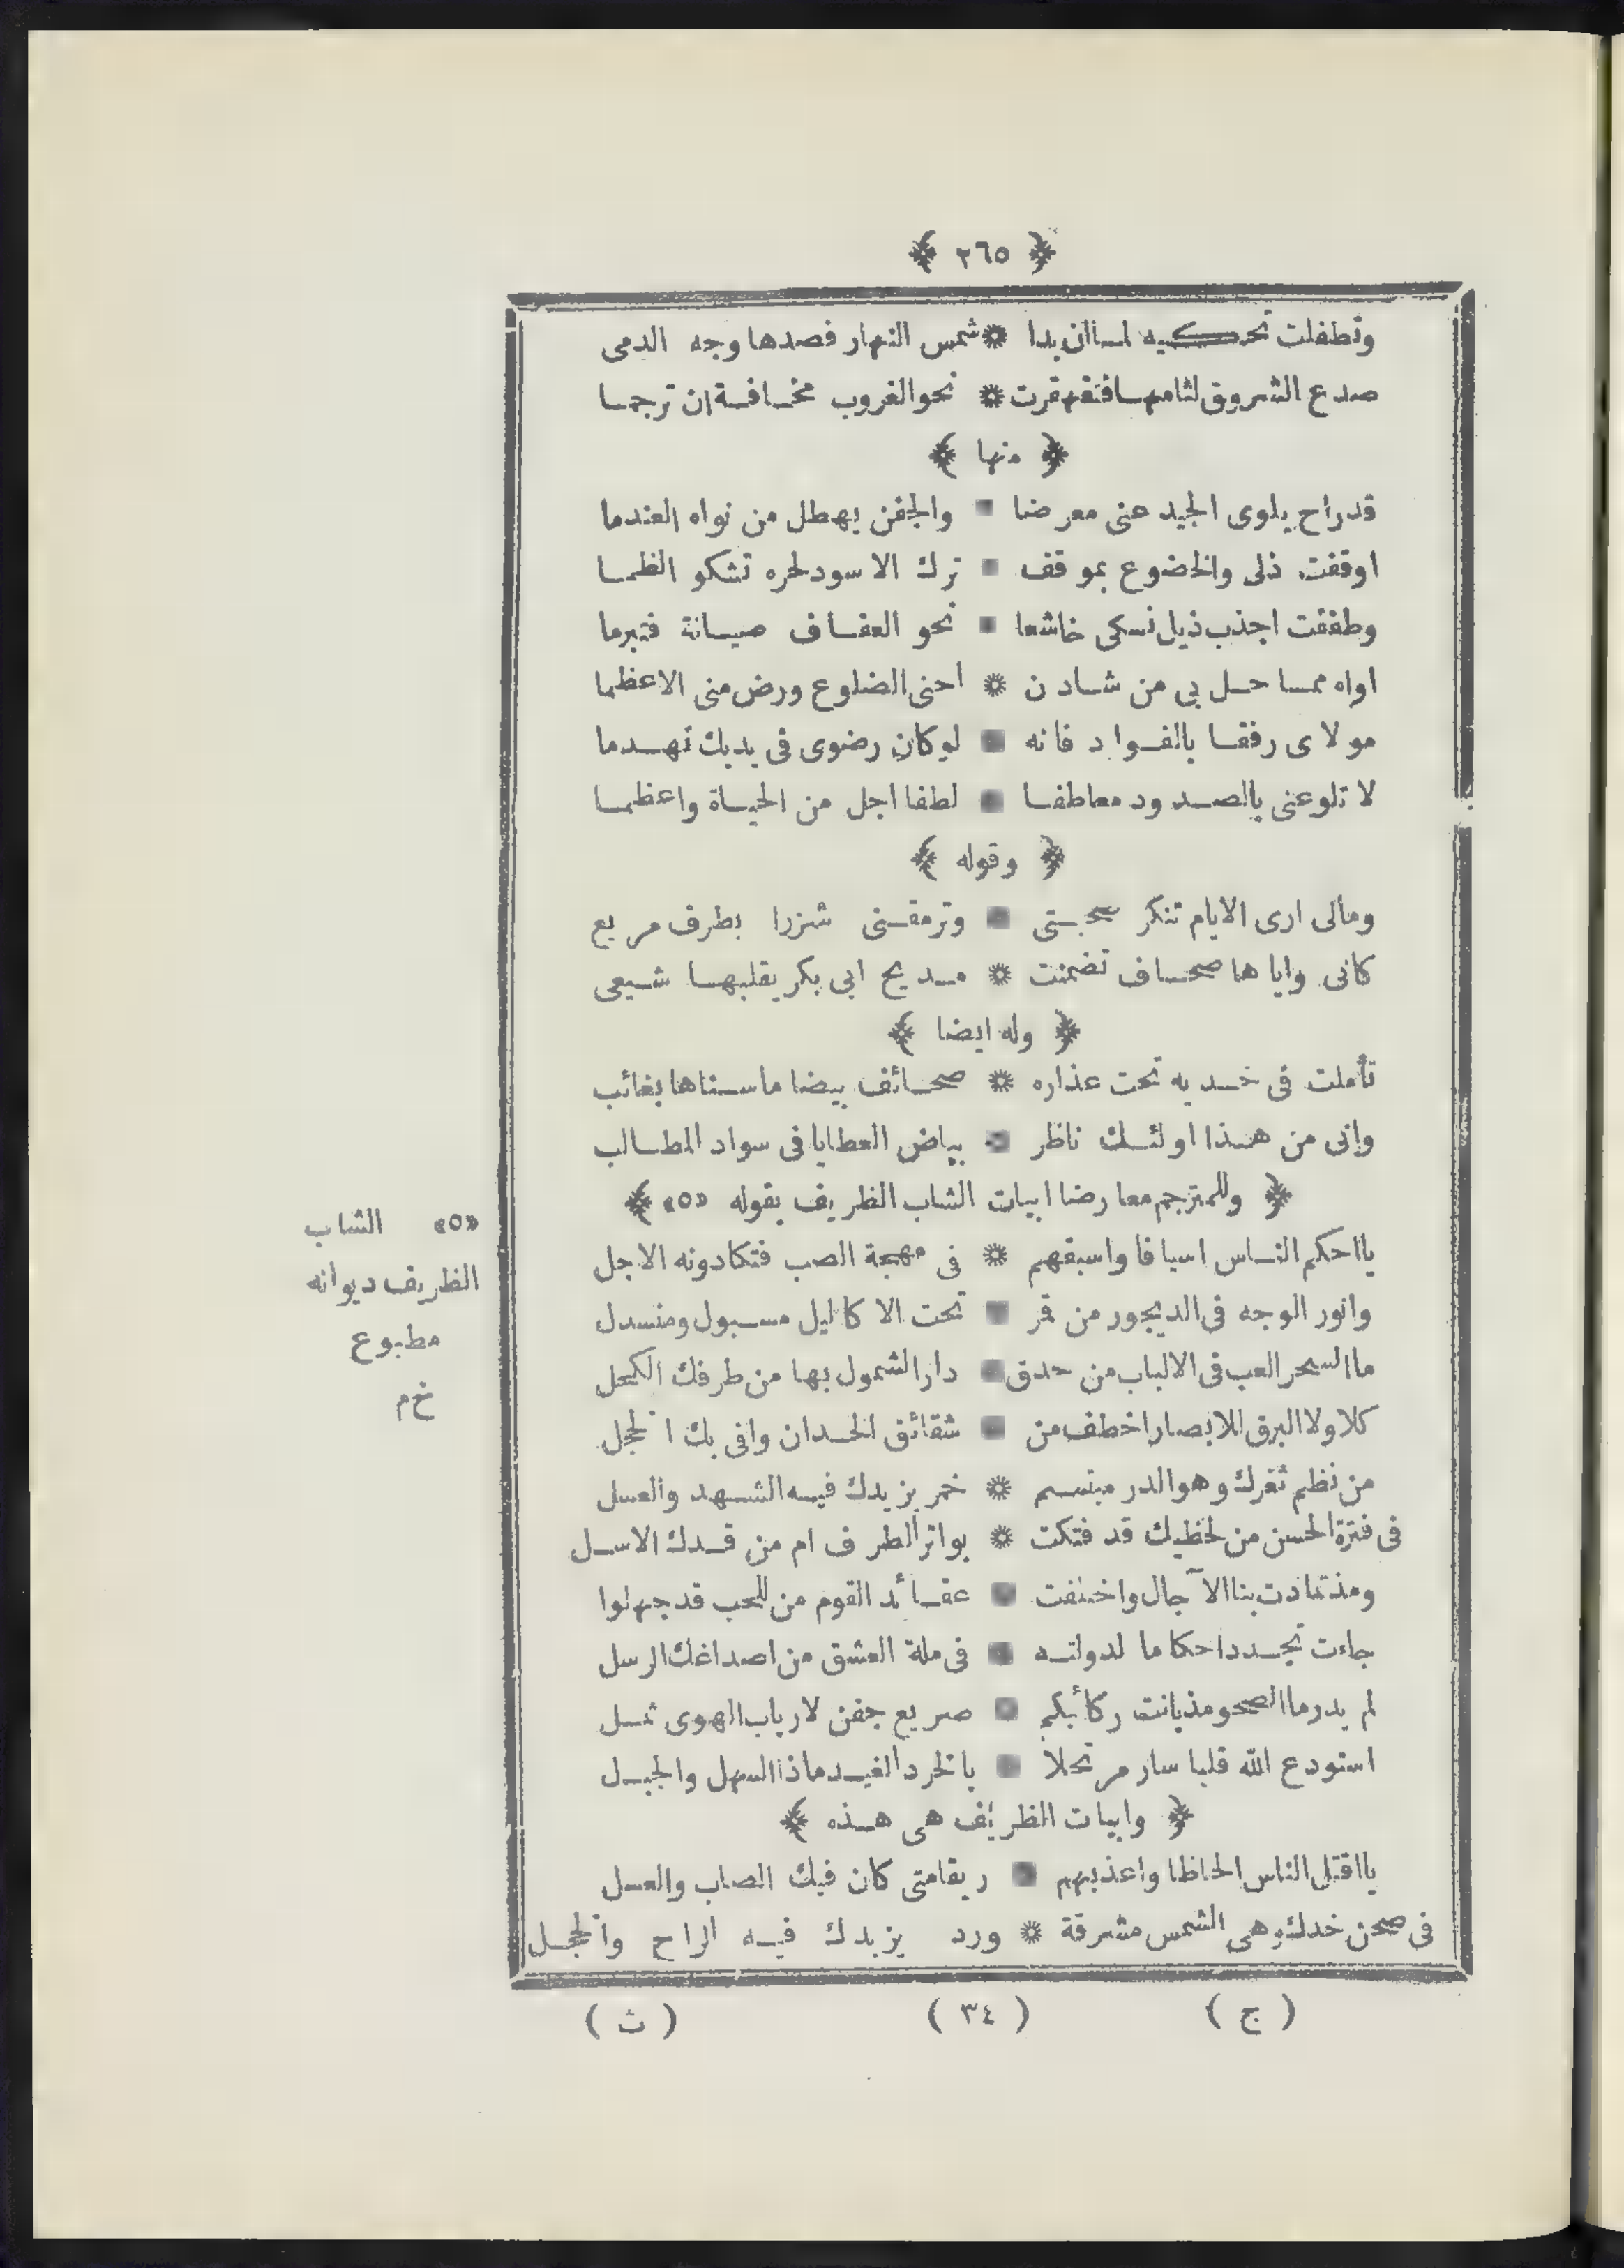 ﴿ ٢٦٥ ﴾
وتطفلت تحكيه لما ان بدا * شمس النهار فصدها وجه الدمى
صدع الشروق لثامها فتقهقرت * نحو الغروب مخافة ان ترجما
﴿ منها ﴾
قد راح يلوى الجيد عنى معرضا * والجفن يهطل من نواه العندما
اوقفت ذلى والخضوع بموقف * ترك الاسود لحره تشكو الظما
وطفقت اجذب ذيل نسكى خاشعا * نحو العفاف صيانة فتبرما
اواه مما حل بى من شادن * احنى الضلوع ورض منى الاعظما
مولاى رفقا بالفواد فانه * لو كان رضوى فى يديك تهدما
لا تلو عنى بالصدود معاطفا * لطفا اجل من الحياة واعظما
﴿ وقوله ﴾
ومالى ارى الايام تنكر صحبتى * وترمقنى شزرا بطرف مريع
كانى واياها صحاف تضمنت * مديح ابى بكر يقلبها شيعى
﴿ وله ايضا ﴾
تأملت فى خديه تحت عذاره * صحائف بيضا ما سناها بغائب
وانى من هذا اولئك ناظر * بياض العطايا فى سواد المطالب
﴿ وللمترجم معارضا ابيات الشاب الظريف بقوله «٥» ﴾
يا احكم الناس اسيافا واسبقهم * فى مهجة الصب فتكا دونه الاجل
وانور الوجه فى الديجور من قمر * تحت الاكاليل مسبول ومنسدل
ما السحر العب فى الالباب من حدق * دار الشمول بها من طرفك الكحل
كلا ولا البرق للابصار اخطف من * شقائق الخدان وافى بك الخجل
من نظم ثغرك وهو الدر مبتسم * خمر يزيدك فيه الشهد والعسل
فى فترة الحسن من لحظيك قد فتكت * بواتر الطرف ام من قدك الاسل
ومذ تمادت بنا الآجال واختلفت * عقائد القوم من للحب قد جهلوا
جاءت تجدد احكاما لدولته * فى ملة العشق من اصداغك الرسل
لم يدر ما الصحو مذ بانت ركائبكم * صريع جفن لارباب الهوى ثمل
استودع الله قلبا سار مرتحلا * بالخرد الغيد ماذا السهل والجبل
﴿ وابيات الظريف هى هذه ﴾
يا اقتل الناس الحاظا واعذبهم * ريقا متى كان فيك الصاب والعسل
فى صحن خدك وهى الشمس مشرقة * ورد يزيدك فيه الراح والخجل
( ج ) ( ٣٤ ) ( ث )
«٥» الشاب
الظريف ديوانه
مطبوع
خ م